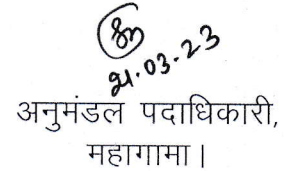 21.03.23
अनुमंडल पदाधिकारी,
महागामा।